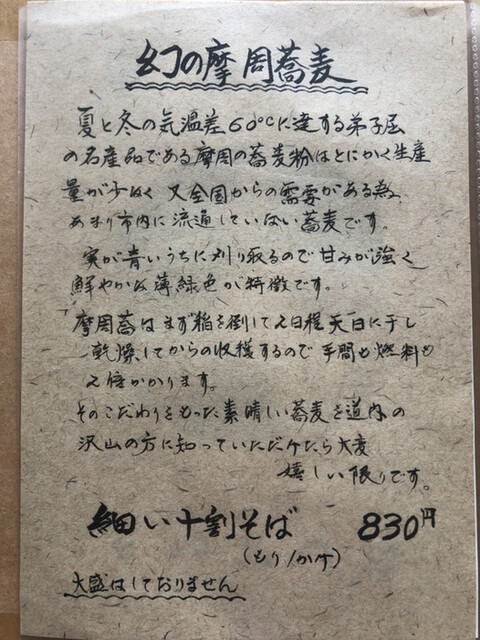 幻の摩周蕎麦
夏と冬の気温差60℃に達する弟子屈
の名産品である摩周の蕎麦粉はとにかく生産
量が少なく 又全国からの需要がある為、
あまり市内に流通していない蕎麦です。
実が青いうちに刈り取るので甘みが強く
鮮やかな薄緑色が特徴です。
摩周蕎はまず稲を倒して2日程天日に干し
乾燥してからの収穫するので手間も燃料も
2倍かかります。
そのこだわりをもった素晴しい蕎麦を道内の
沢山の方に知っていただけたら大変
嬉しい限りです。
細い十割そば 830円
(もり/かけ)
大盛はしておりません